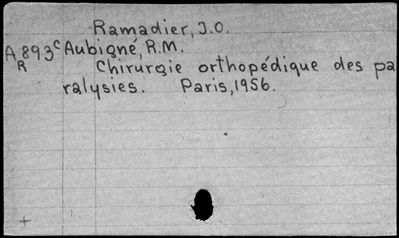 Ramadier, J.O.
A 893c Aubigné, R.M.
R Chirurgie orthopédique des pa
ralysies. Paris, 1956.